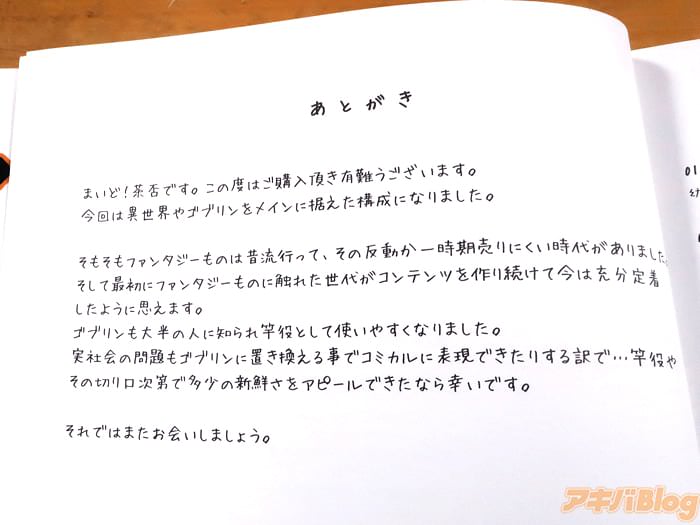 あとがき
まいど！茶否です。この度はご購入頂き有難うございます。
今回は異世界やゴブリンをメインに据えた構成になりました。
そもそもファンタジーものは昔流行って、その反動か一時期売りにくい時代がありました。
そして最初にファンタジーものに触れた世代がコンテンツを作り続けて今は充分定着
したように思えます。
ゴブリンも大半の人に知られ竿役として使いやすくなりました。
実社会の問題もゴブリンに置き換える事でコミカルに表現できたりする訳で…竿役や
その切り口次第で多少の新鮮さをアピールできたなら幸いです。
それではまたお会いしましょう。
01
アキバBlog